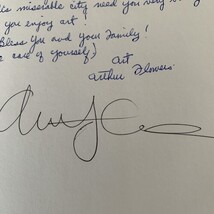 is miserable city need you very
you enjoy art!
Bless You and your Family!
care of yourself)
Art
Arthur Flowers